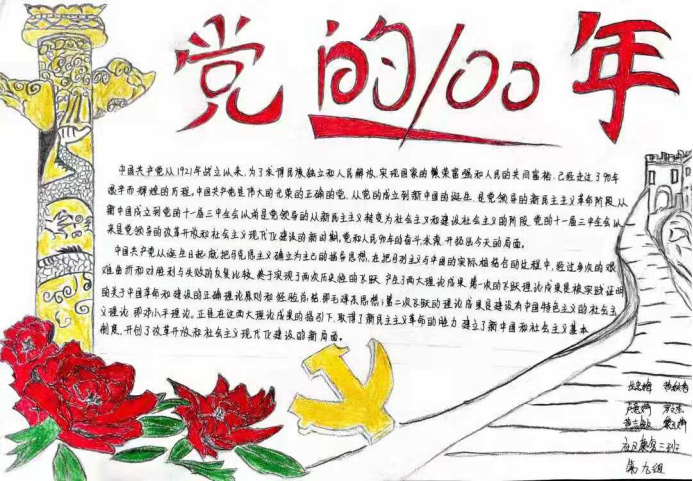 党的100年
中国共产党从1921年成立以来,为了求得民族独立和人民解放,实现国家的繁荣富强和人民的共同富裕,已经走过了90年
艰辛而辉煌的历程。中国共产党是伟大的光荣的正确的党。从党的成立到新中国的诞生,是党领导的新民主主义革命阶段,从
新中国成立到党的十一届三中全会以前是党领导的从新民主主义转变为社会主义和建设社会主义的阶段,党的十一届三中全会以
来是党领导的改革开放和社会主义现代化建设的新时期,党和人民90年的奋斗,开拓出今天的局面。
中国共产党从诞生日起,就把马克思主义确立为自己的指导思想,在把马列主义与中国的实际相结合的过程中,经过多次的艰
难曲折和对胜利与失败的反复比较,终于实现了两次历史性的飞跃,产生了两大理论成果,第一次的飞跃理论成果是被实践证明
的关于中国革命和建设的正确理论原则和经验总结即毛泽东思想;第二次飞跃的理论成果是建设有中国特色主义的社会主
义理论即邓小平理论。正是在这两大理论成果的指引下,取得了新民主主义革命的胜力,建立了新中国和社会主义基本
制度,开创了改革开放和社会主义现代化建设的新局面。
第九组